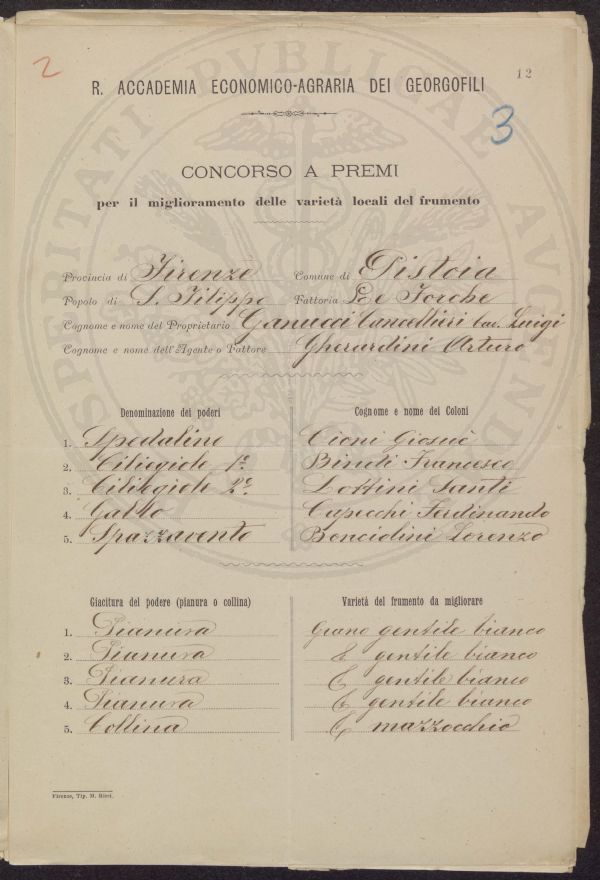 2
12
R. ACCADEMIA ECONOMICO-AGRARIA DEI GEORGOFILI
3
CONCORSO A PREMI
per il miglioramento delle varietà locali del frumento
Provincia di Firenze Comune di Pistoia
Popolo di S. Filippo Fattoria Le Forche
Cognome e nome del Proprietario Ganucci Cancellieri Cav. Luigi
Cognome e nome dell'Agente o Fattore Gherardini Arturo
Denominazione dei poderi Cognome e nome dei Coloni
1. Spedalino Cioni Giosuè
2. Ciliegiole 1º Binoli Francesco
3. Ciliegiole 2º Lottini Santi
4. Gatto Capecchi Ferdinando
5. Spazzavento Boncidini Lorenzo
Giacitura del podere (pianura o collina) Varietà del frumento da migliorare
1. Pianura Grano gentile bianco
2. Pianura gentile bianco
3. Pianura gentile bianco
4. Pianura gentile bianco
5. Collina mazzocchio
Firenze, Tip. M. Ricci.